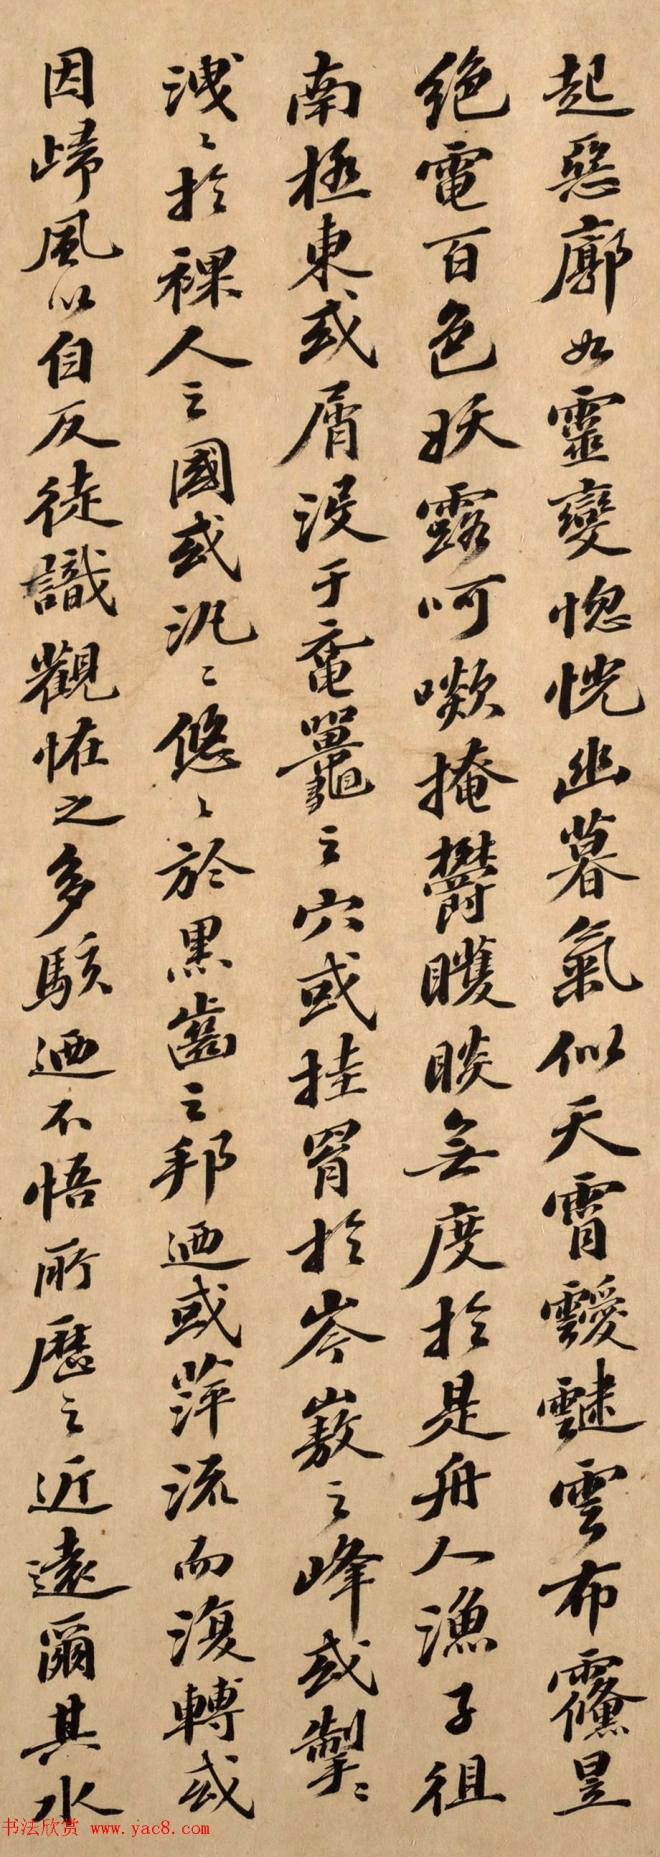 起惡廓如靈變惚恍幽暮氣似天霄靉靅雲布昱
絕電百色妖露呵㗵掩鬱矆睒無度於是舟人漁子徂
南極東或屑沒于黿鼉之穴或挂罥於岑㟼之峰或掣〻
洩〻於裸人之國或汎〻悠〻於黑齒之邦迺或萍流而澓轉或
因歸風以自反徒識觀怪之多駭迺不悟所歷之近遠爾其水
书法欣赏 www.yac8.com